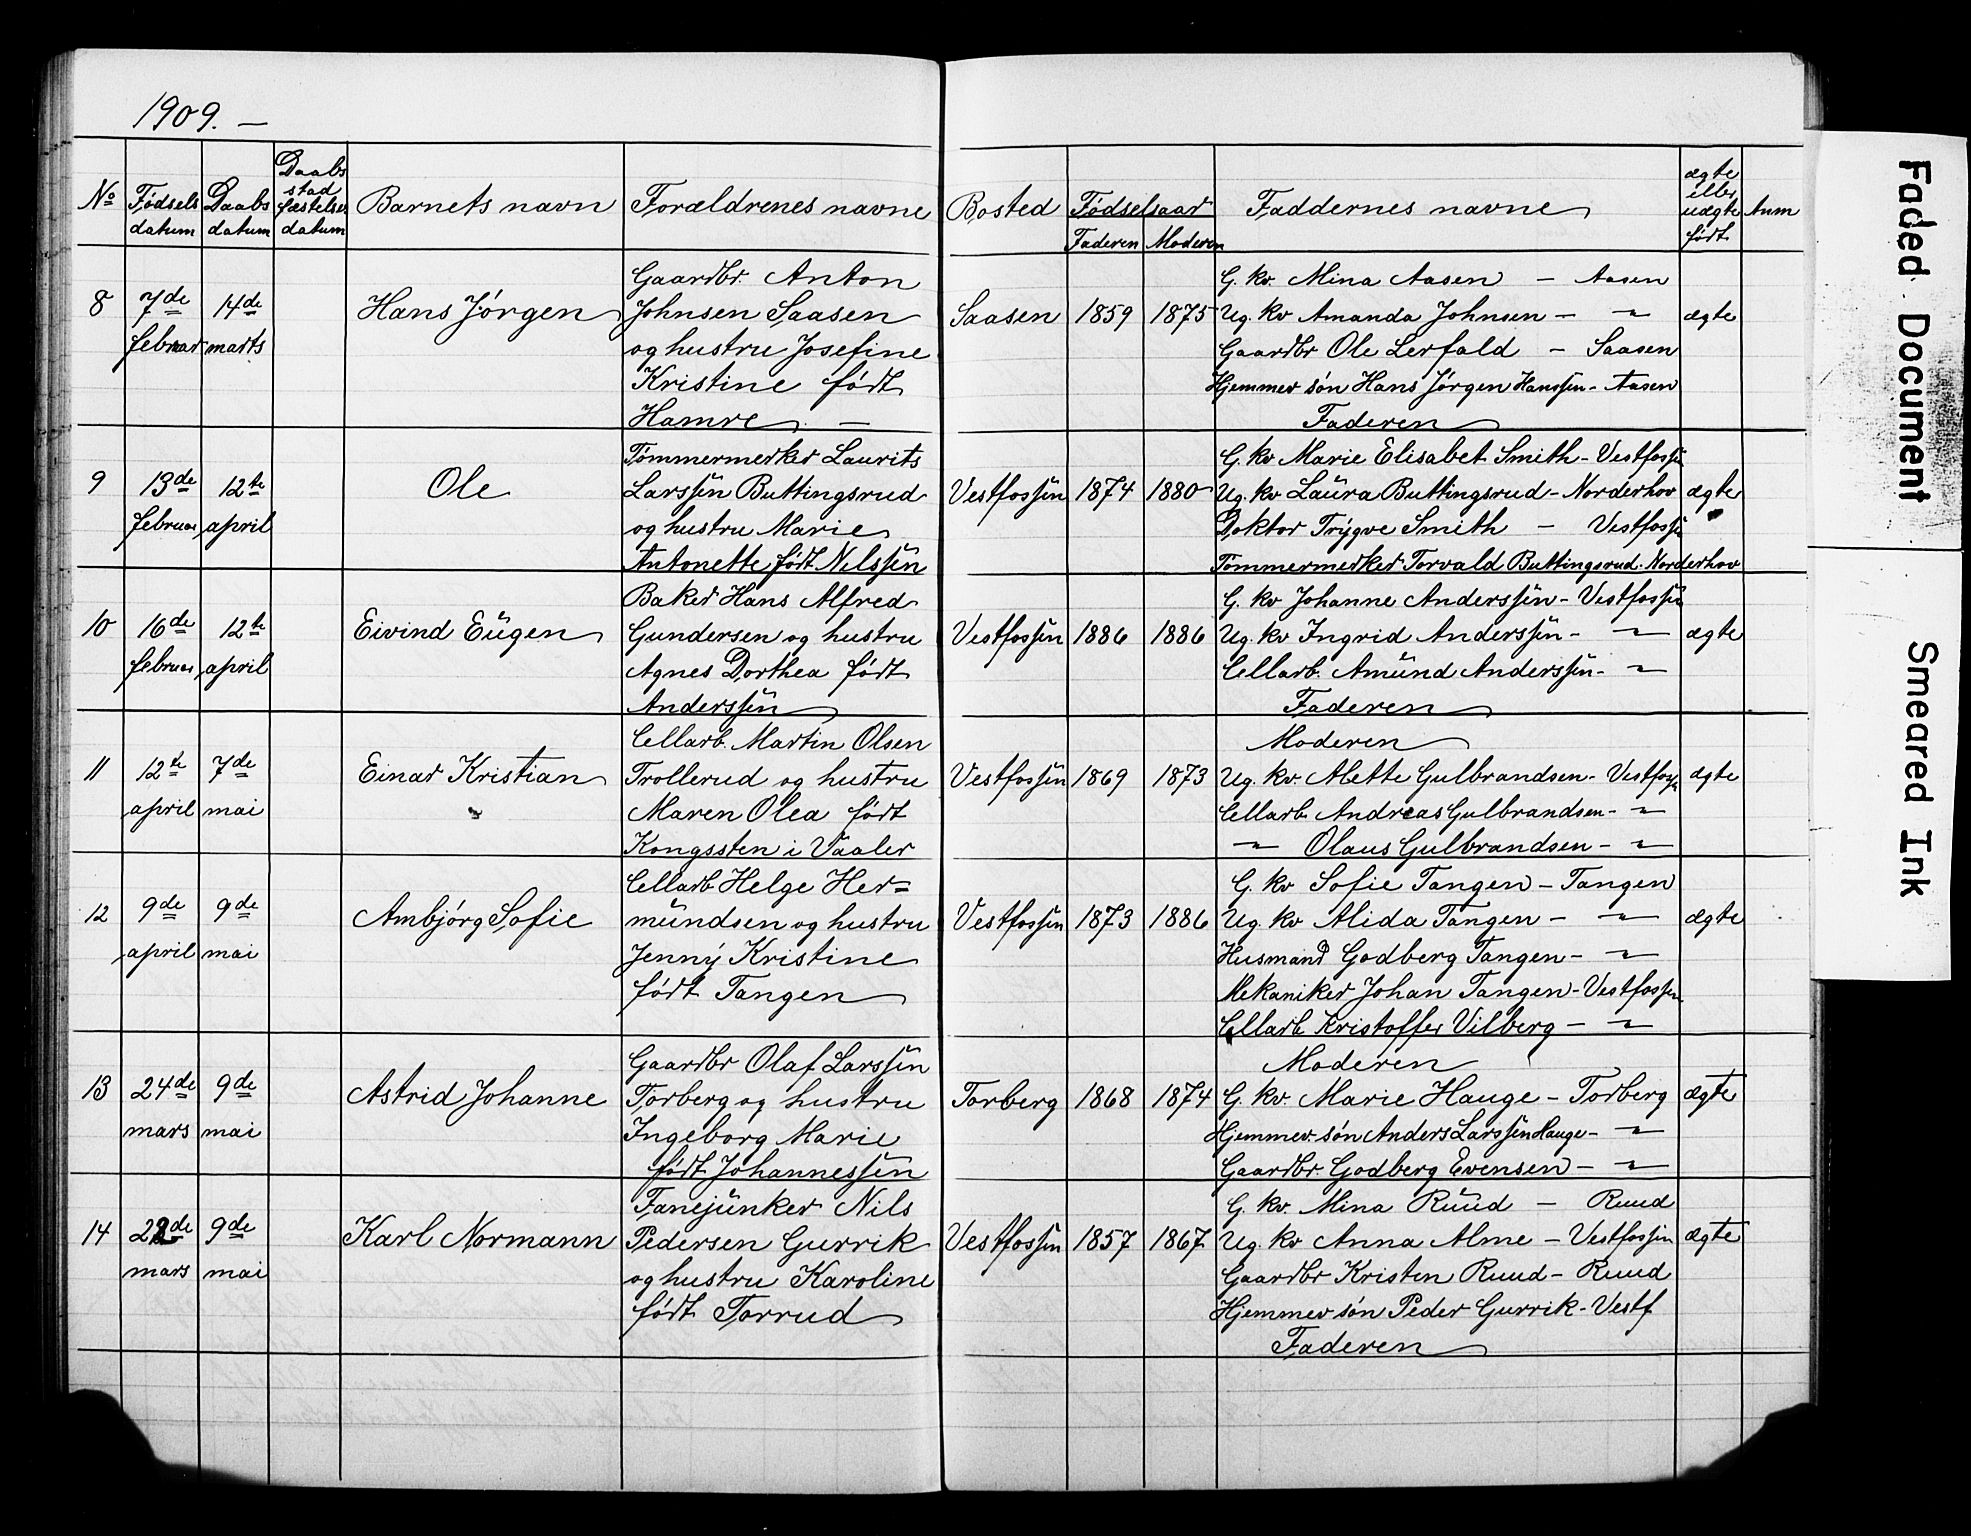 1909. —
No | Fødsels datum | Daabs datum | Daabs stad fæstelses datum | Barnets navn | Forældrenes navne | Bosted | Fødselsaar Faderen Moderen | Faddernes navne | ægte eller uægte født | Anm
8
7de februar
14de marts
Hans Jørgen
Gaardbr. Anton
Johnsen Saasen
og hustru Josefine
Kristine født
Hamre. —
Saasen
1859
1875
G. kv. Mina Aasen — Aasen
Ug. kv Amanda Johnsen — "
Gaardbr Ole Lerfald — Saasen
Hjemmev søn Hans Jørgen Hanssen - Aasen
Faderen
ægte
9
13de februar
12te april
Ole
Tømmermerker Laurits
Larssen Buttingsrud
og hustru Marie
Antonette født Nilssen
Vestfossen
1874
1880
G. kv Marie Elisabet Smith - Vestfossen
Ug. kv Laura Buttingsrud - Norderhov
Doktor Trygve Smith — Vestfossen
Tømmermerker Torvald Buttingsrud - Norderhov
ægte
10
16de februar
12te april
Eivind Eugen
Baker Hans Alfred
Gundersen og hustru
Agnes Dorthea født
Anderssen
Vestfossen
1886
1886
G. kv Johanne Anderssen - Vestfossen
Ug. kv Ingrid Anderssen - "
Cellarb. Amund Anderssen - "
Faderen
ægte
11
12te april
7de mai
Einar Kristian
Cellarb. Martin Olsen
Trollerud og hustru
Maren Olea født
Kongssten i Vaaler
Vestfossen
1869
1873
Moderen
Ug. kv. Alette Gulbrandsen - Vestfoss
Cellarb Andreas Gulbrandsen - "
" Olaus Gulbrandsen - "
ægte
12
9de april
9de mai
Ambjørg Sofie
Cellarb Helge Her=
mundsen og hustru
Jenny Kristine
født Tangen
Vestfossen
1873
1886
G. kv Sofie Tangen — Tangen
Ug. kv Alida Tangen — "
Husmand Godberg Tangen - "
Mekaniker Johan Tangen - Vestfossen
Cellarb Kristoffer Vilberg — "
ægte
13
24de mars
9de mai
Astrid Johanne
Gaardbr Olaf Larssen
Torberg og hustru
Ingeborg Marie
født Johannessen
Torberg
1868
1874
Moderen
G. kv. Marie Hauge — Torberg
Hjemmev. søn Anders Larssen Hauge - "
Gaardbr. Godberg Evensen — "
ægte
14
22de mars
9de mai
Karl Normann
Fanejunker Nils
Pedersen Gurrik
og hustru Karoline
født Torrud
Vestfossen
1857
1867
G. kv. Mina Ruud — Ruud
Ug. kv Anna Alme — Vestfossen
Gaardbr Kristen Ruud — Ruud
Hjemmev søn Peder Gurrik - Vestf
Faderen
ægte
Faded Document
Smeared Ink